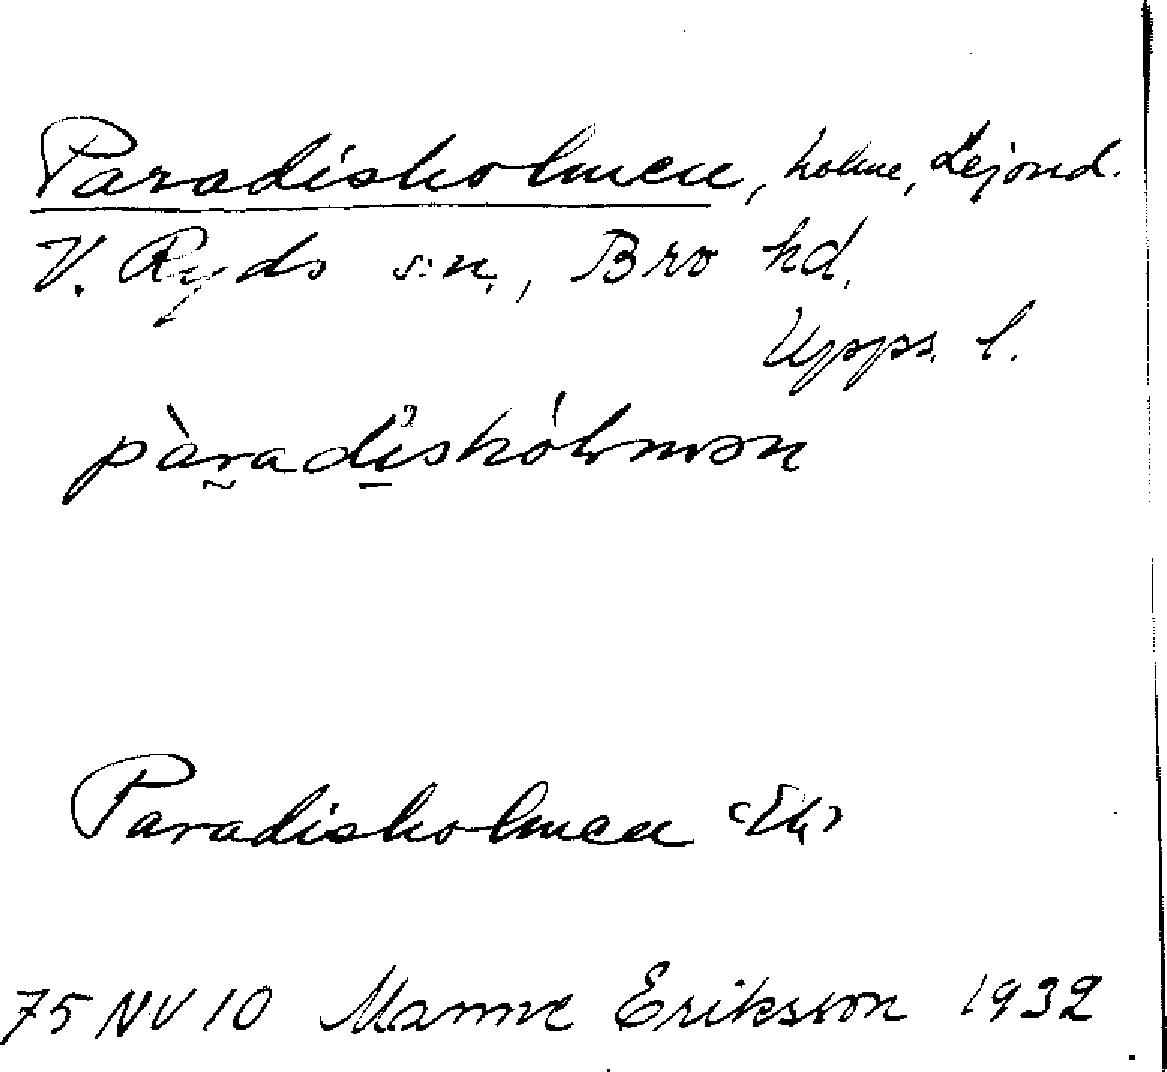 Paradisholmen, holme, Lejond.
V. Ryds s:n, Bro hd.
Upps. l.
pàradi̊skólmən
Paradisholmen (Ek)
75 NV 10 Manne Eriksson 1932